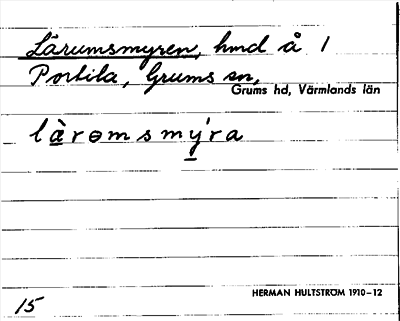 Lärumsmyren, hmd å 1
Portila, Grums sn,
Grums hd, Värmlands län
lὰrɵmsmy̍ra
HERMAN HULTSTRÖM 1910–12
15